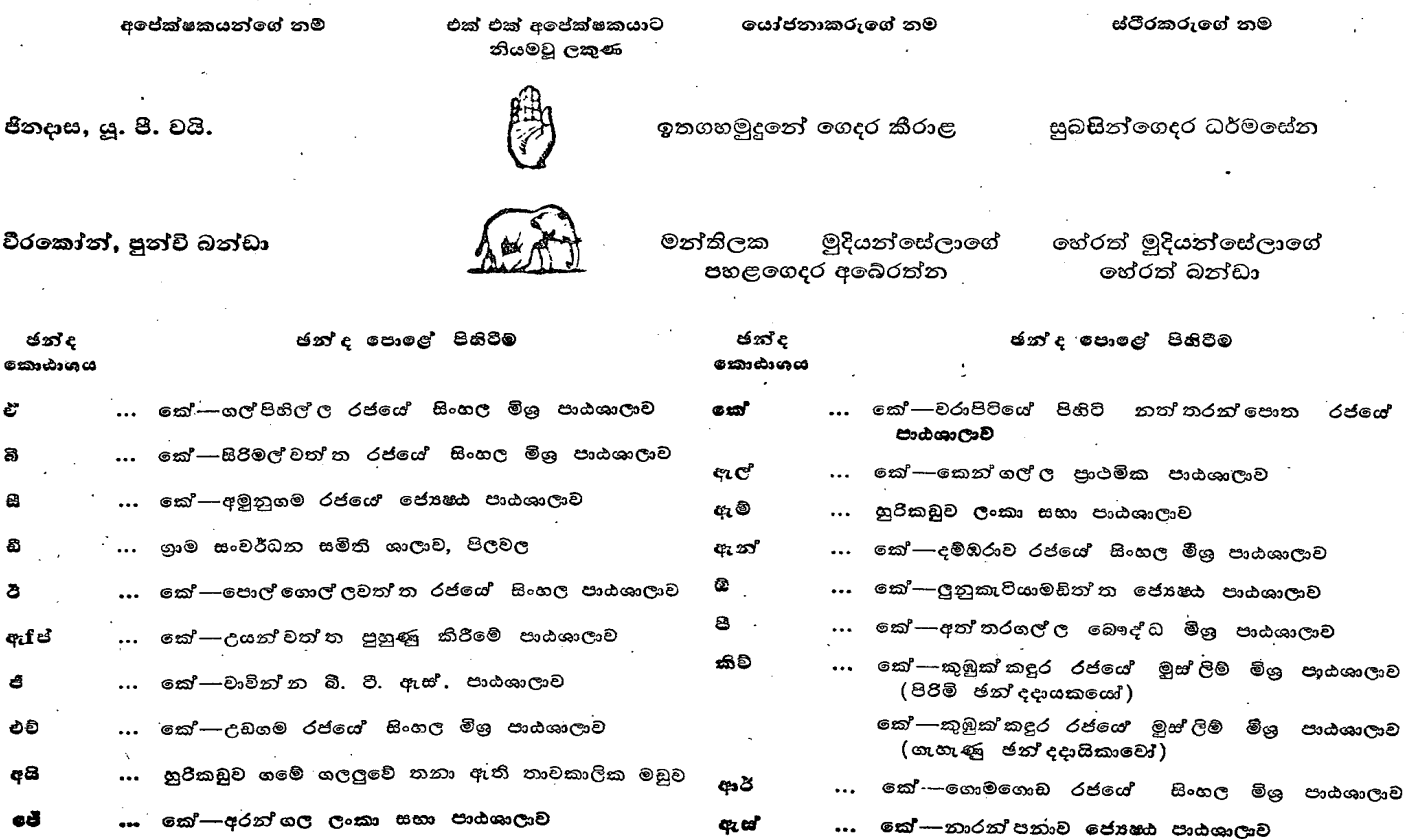 අපේක්ෂකයන්ගේ නම්
එක් එක් අපේක්ෂකයාට
නියමවූ ලකුණ
යෝජනාකරුගේ නම
ස්ථිරකරුගේ නම
ජිනදාස, යූ. පී. වයි.
ඉතගහමුදුනේ ගෙදර කීරාළ
සුබසින්ගෙදර ධර්මසේන
වීරකෝන්, පුන්චි බන්ඩා
මන්තිලක මුදියන්සේලාගේ
පහළගෙදර අබේරත්න
හේරත් මුදියන්සේලාගේ
හේරත් බන්ඩා
ඡන්ද
කොඨාශය
ඡන්ද පොළේ පිහිටීම
ඒ ... කේ—ගල්පිහිල්ල රජයේ සිංහල මිශ්‍ර පාඨශාලාව
බී ... කේ—සිරිමල්වත්ත රජයේ සිංහල මිශ්‍ර පාඨශාලාව
සී ... කේ—අමුනුගම රජයේ ජ්‍යෙෂ්ඨ පාඨශාලාව
ඩී ... ග්‍රාම සංවර්ධන සමිති ශාලාව, පිලවල
ඊ ... කේ—පොල්ගොල්ලවත්ත රජයේ සිංහල පාඨශාලාව
ඇෆ් ... කේ—උයන්වත්ත පුහුණු කිරීමේ පාඨශාලාව
ජී ... කේ—වාවින්න බී. ටී. ඇස්. පාඨශාලාව
එච් ... කේ—උඩගම රජයේ සිංහල මිශ්‍ර පාඨශාලාව
අයි ... හුරිකඩුව ගමේ ගලලුවේ තනා ඇති තාවකාලික මඩුව
ජේ ... කේ—අරන්ගල ලංකා සභා පාඨශාලාව
ඡන්ද
කොඨාශය
ඡන්ද පොළේ පිහිටීම
කේ ... කේ—වරාපිටියේ පිහිටි නත්තරන්පොත රජයේ
පාඨශාලාව
ඇල් ... කේ—කෙන්ගල්ල ප්‍රාථමික පාඨශාලාව
ඇම් ... හුරිකඩුව ලංකා සභා පාඨශාලාව
ඇන් ... කේ—දම්ඹරාව රජයේ සිංහල මිශ්‍ර පාඨශාලාව
ඕ ... කේ—ලුනුකැටියාමඩිත්ත ජ්‍යෙෂ්ඨ පාඨශාලාව
පී ... කේ—අත්තරගල්ල බෞද්ධ මිශ්‍ර පාඨශාලාව
කිව් ... කේ—කුඹුක්කඳුර රජයේ මුස්ලිම් මිශ්‍ර පාඨශාලාව
(පිරිමි ඡන්දදායකයෝ)
කේ—කුඹුක්කඳුර රජයේ මුස්ලිම් මිශ්‍ර පාඨශාලාව
(ගැහැණු ඡන්දදායිකාවෝ)
ආර් ... කේ—ගොමගොඩ රජයේ සිංහල මිශ්‍ර පාඨශාලාව
ඇස් ... කේ—නාරන්පනාව ජ්‍යෙෂ්ඨ පාඨශාලාව